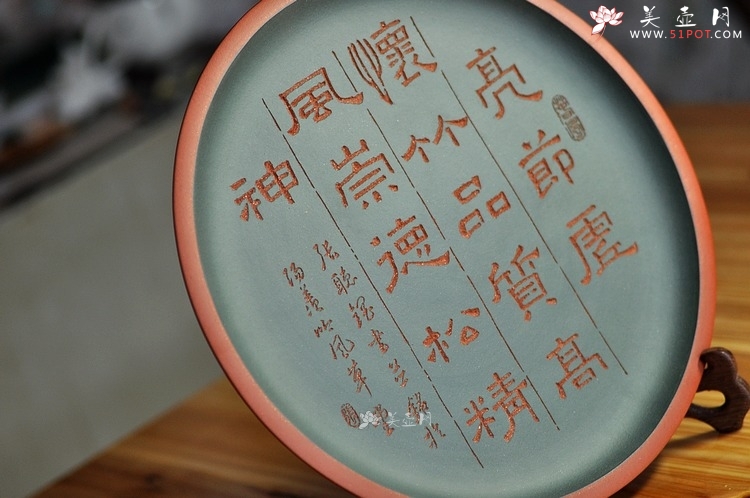 亮節虛
懷竹品質高
風崇德松精
神
張聽書並於
陽羨吟風草堂
美壶网
WWW.51POT.COM
美壶网